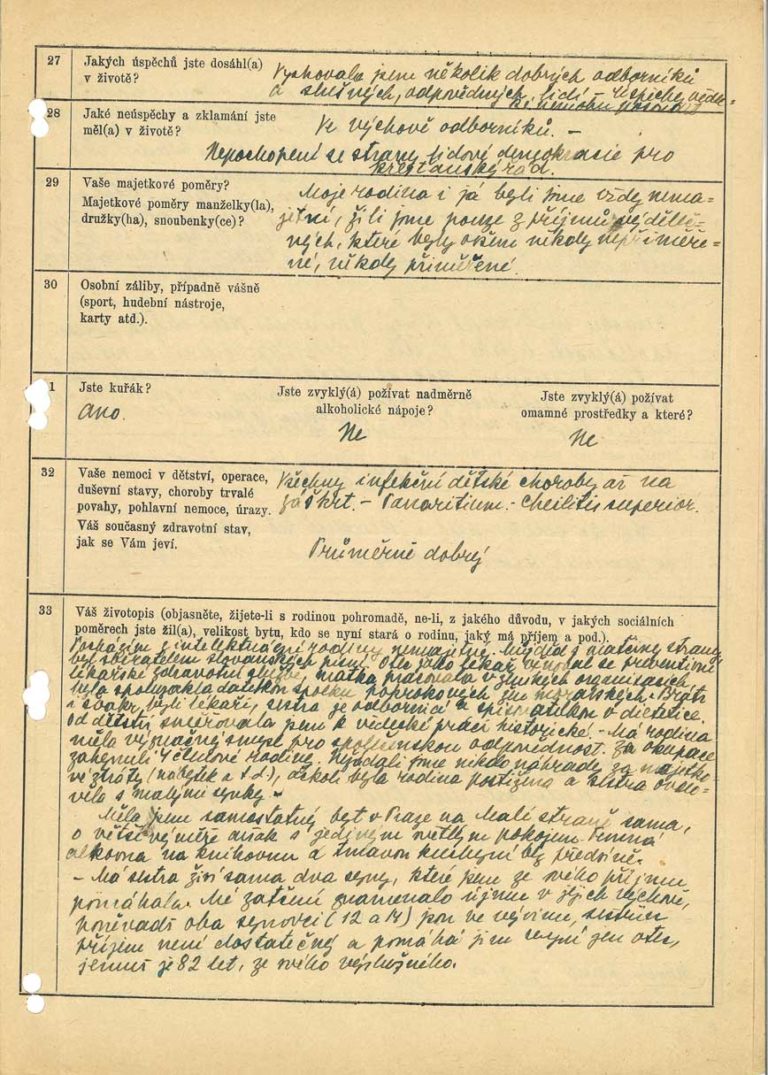 27 Jakých úspěchů jste dosáhl(a)
v životě?
Vychovala jsem několik dobrých odborníků
a slušných, odpovědných lidí – Úspěchy
28 Jaké neúspěchy a zklamání jste
měl(a) v životě?
Ve výchově odborníků. –
Nepochopení se strany lidové demokracie pro
křesťanský řád.
29 Vaše majetkové poměry?
Majetkové poměry manželky(la),
družky(ha), snoubenky(ce)?
Moje rodina i já byli jsme vždy nema-
jetní, žili jsme pouze z příjmů výděleč-
ných, které byly ovšem někdy nepřiměře-
né, někdy přiměřené.
30 Osobní záliby, případně vášně
(sport, hudební nástroje,
karty atd.).
1 Jste kuřák?
ano.
Jste zvyklý(á) požívat nadměrně
alkoholické nápoje?
Ne
Jste zvyklý(á) požívat
omamné prostředky a které?
Ne
32 Vaše nemoci v dětství, operace,
duševní stavy, choroby trvalé
povahy, pohlavní nemoce, úrazy.
Váš současný zdravotní stav,
jak se Vám jeví.
Všechny infekční dětské choroby až na
záškrt. – Panaritium. – Cheilitis superior.
Průměrně dobrý
33 Váš životopis (objasněte, žijete-li s rodinou pohromadě, ne-li, z jakého důvodu, v jakých sociálních
poměrech jste žil(a), velikost bytu, kdo se nyní stará o rodinu, jaký má příjem a pod.).
Pocházím z intelektuální rodiny nemajetné. Můj děd s matčiny strany
byl sběratelem slovanských písní. Otec jako lékař věnoval se preventivní
lékařské zdravotní službě, matka pracovala v ženských organisacích,
byla spoluzakladatelkou spolku moravských. Bratr
i švakr byli lékaři, sestra je odbornicí a spisovatelkou v dietetice.
Od dětství směřovala jsem k vědecké práci historické. – Má rodina
měla význačný smysl pro společenskou odpovědnost. Za okupace
zahynuli 4 členové rodiny. Nežádali jsme nikdo náhrady za majetko-
vé ztráty (nábytek a t. d.), ačkoli byla rodina postižena a sestra ovdo-
věla s malými synky –
Měla jsem samostatný byt v Praze na Malé straně sama,
o větší výměře avšak s jediným světlým pokojem. Temná
alkovna na knihovnu a tmavou kuchyní bez předsíně.
– Má sestra živí sama dva syny, které jsem ze svého příjmu
pomáhala. Mé zatčení znamenalo újmu v jejich výchově,
poněvadž oba synovci (12 a 14) jsou ve vývinu, sestřin
příjem není dostatečný a pomáhá jim nyní jen otec,
jemuž je 82 let, ze svého výslužného.